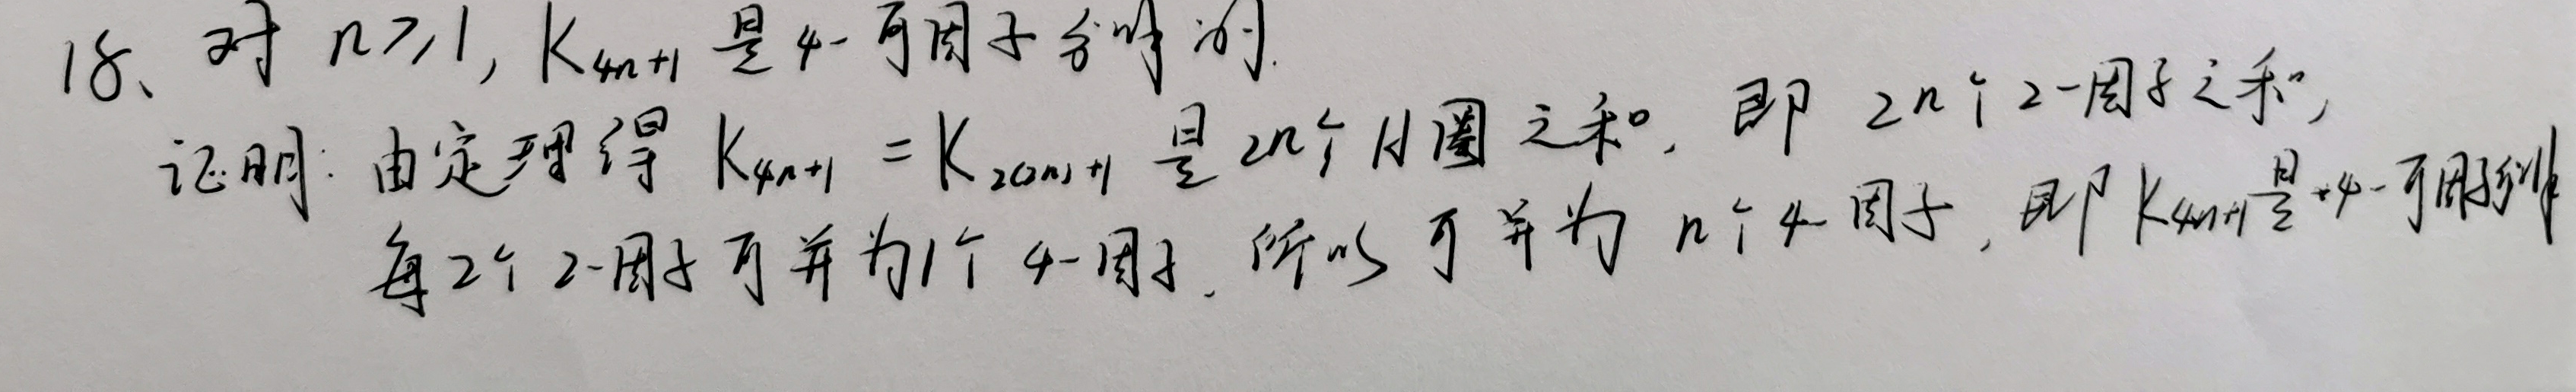 18、对 n≥1, K₄ₙ₊₁ 是 4-可因子分解的.
证明: 由定理得 K₄ₙ₊₁ = K₂₍₂ₙ₎₊₁ 是 2n个 H圈之和, 即 2n个 2-因子之和,
每2个 2-因子可并为1个 4-因子, 所以可并为 n个 4-因子, 即 K₄ₙ₊₁是 4-可因子分解